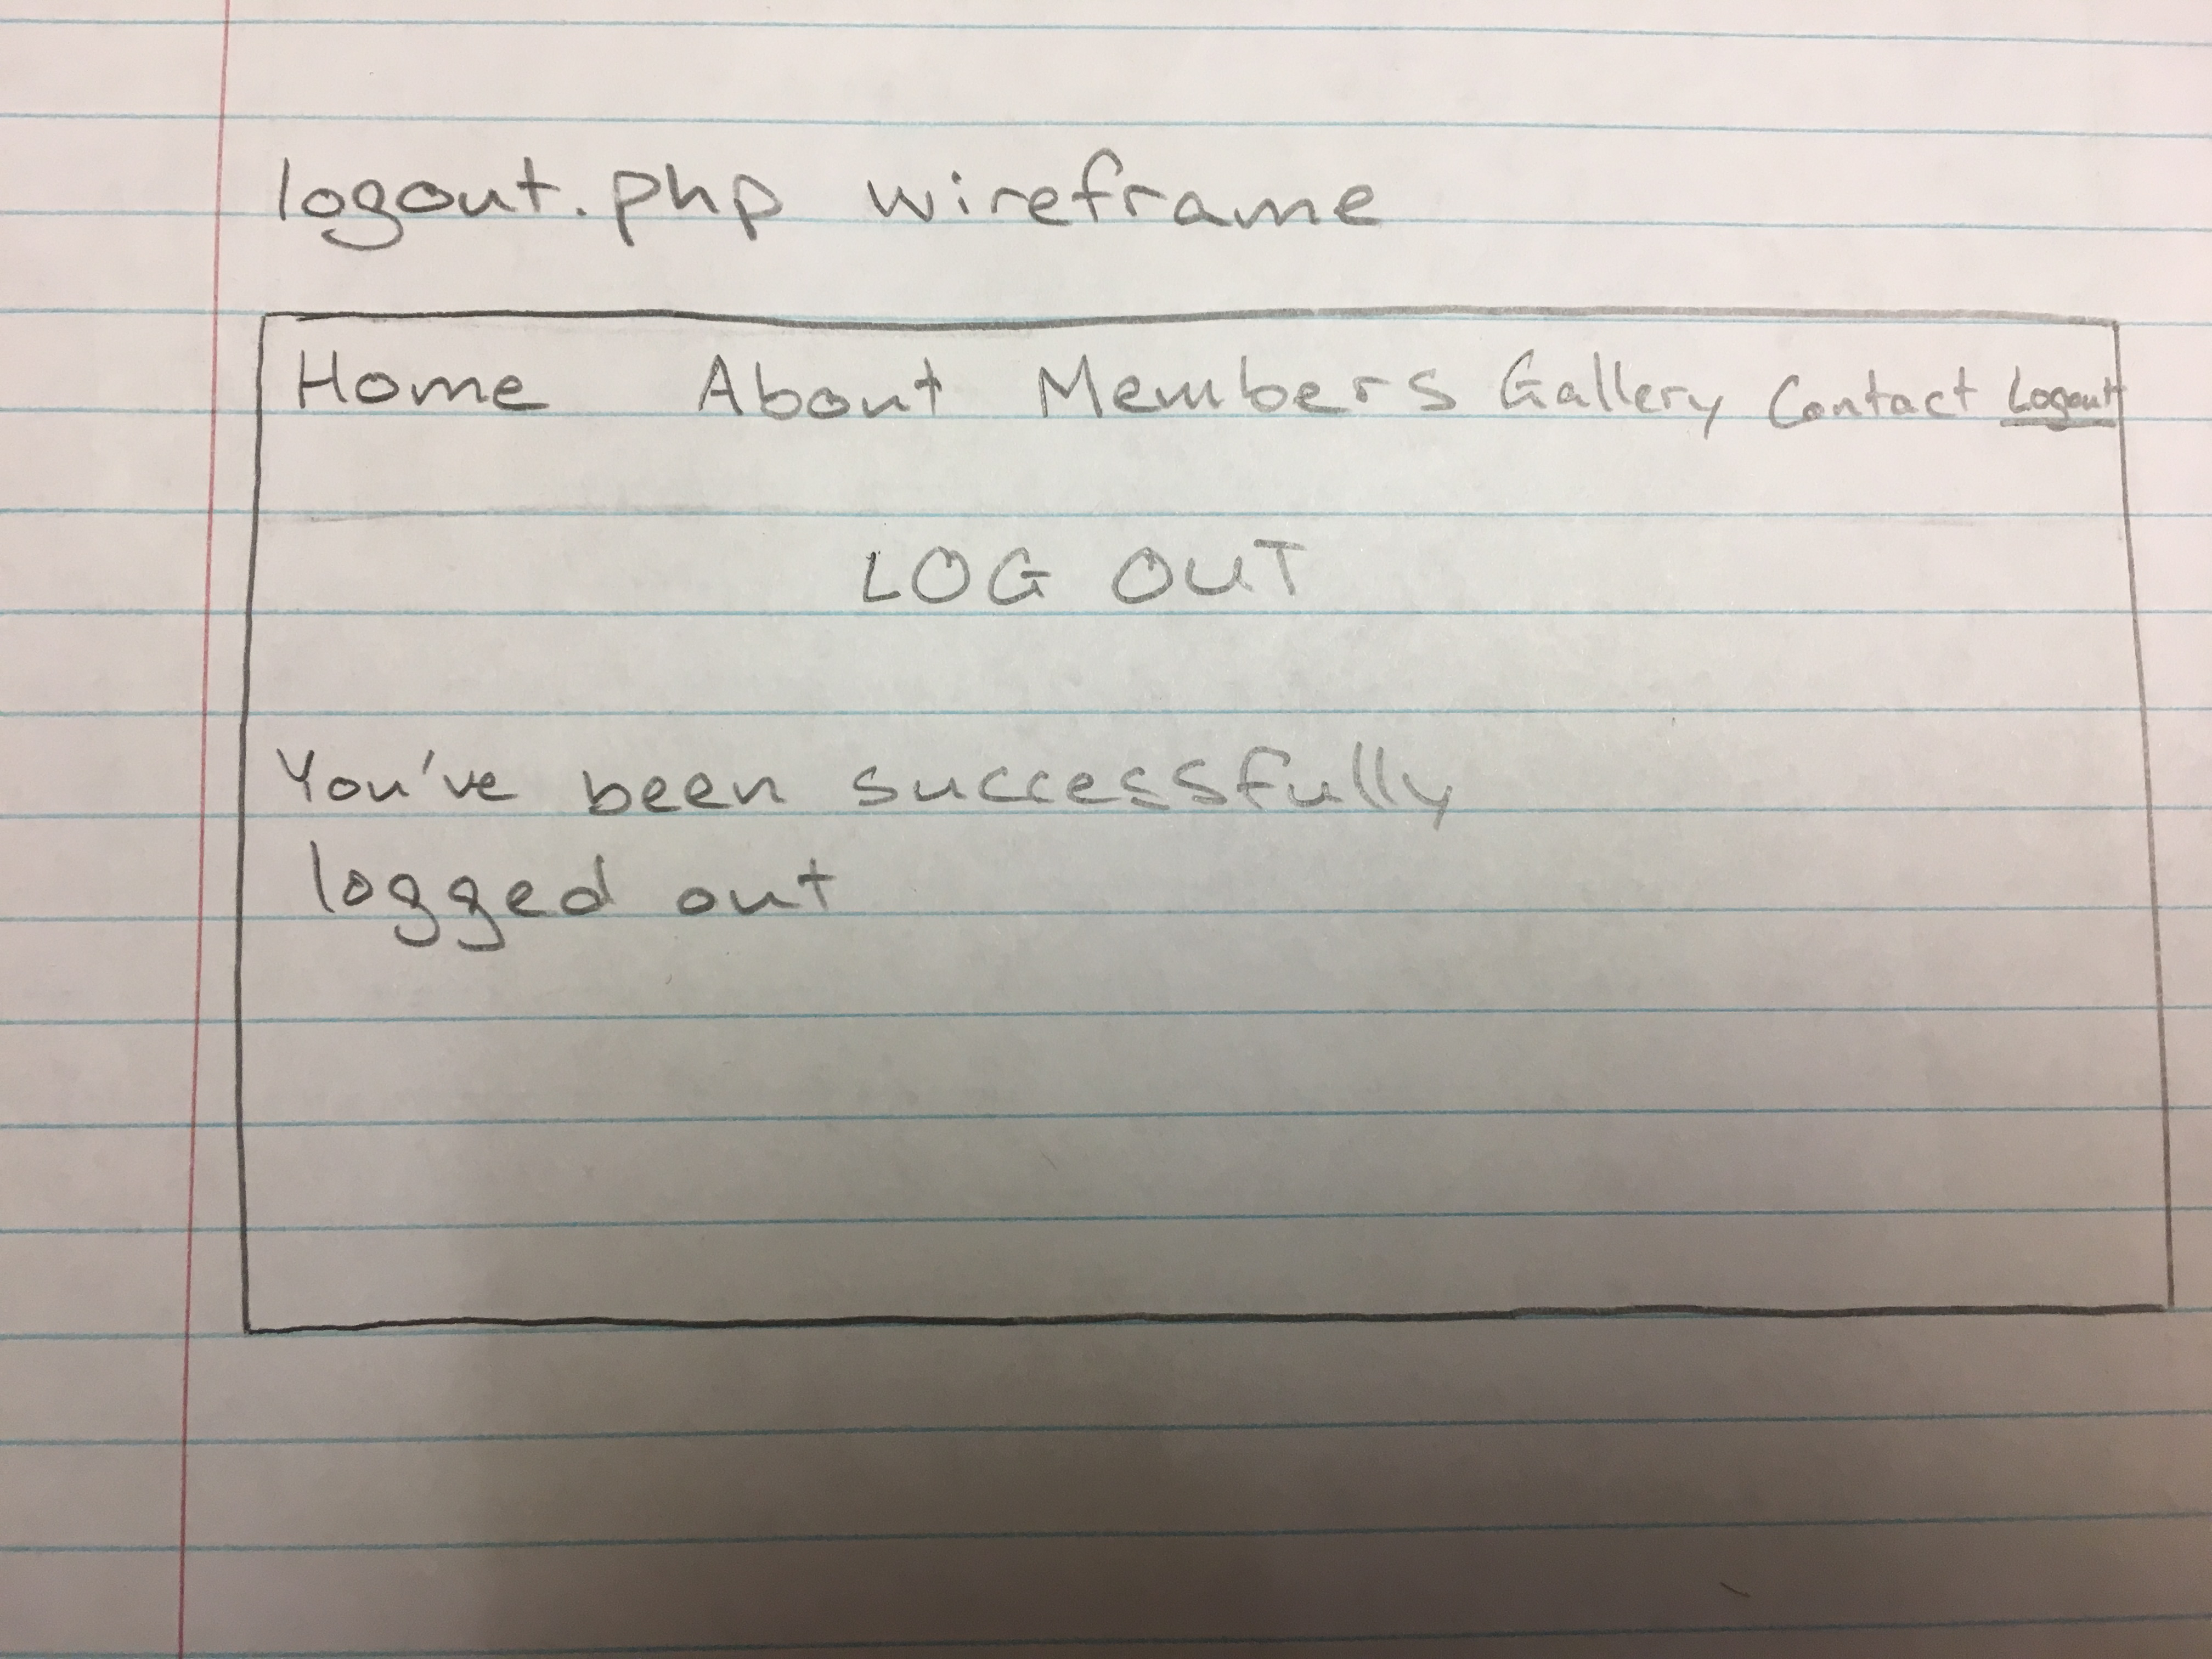 logout.php wireframe
Home About Members Gallery Contact Logout
LOG OUT
You've been successfully
logged out